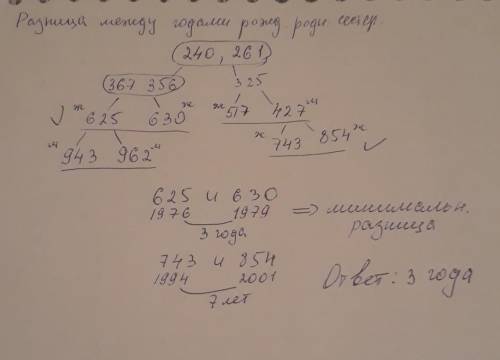 Разница между годами рожд. родн. сестёр.
240, 261
367 356 325
ж 625 630 ж ж 517 427 м
м 943 962 м ж 743 854 ж
625 и 630
1976 1979 => минимальн. разница
3 года
743 и 854
1994 2001
7 лет
Ответ: 3 года